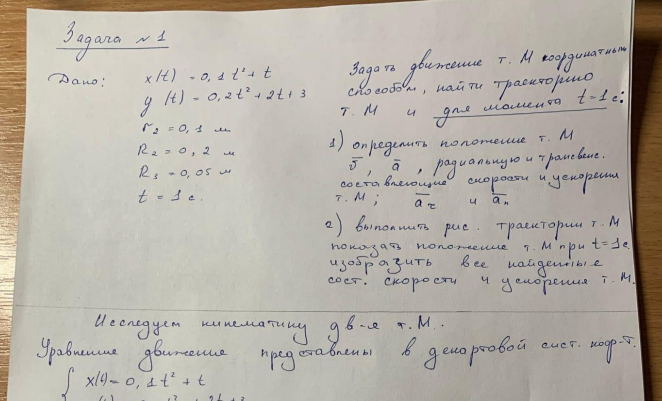 Задача №1
Дано:
x(t) = 0,1t² + t
y(t) = 0,2t² + 2t + 3
r₂ = 0,1 м
R₂ = 0,2 м
R₃ = 0,05 м
t = 1 с.
Задать движение т. М координатным
способом, найти траекторию
т. М и для момента t=1с:
1) определить положение т. М
v̄, ā, радиальную и трансверс.
составляющие скорости и ускорения
т. М; ā_τ и ā_n
2) выполнить рис. траектории т. М
показать положение т. М при t=1с.
изобразить все найденные
сост. скорости и ускорения т. М.
Исследуем кинематику дв-я т. М.
Уравнение движение представлены в декартовой сист. коор-т.
x(t) = 0,1t² + t